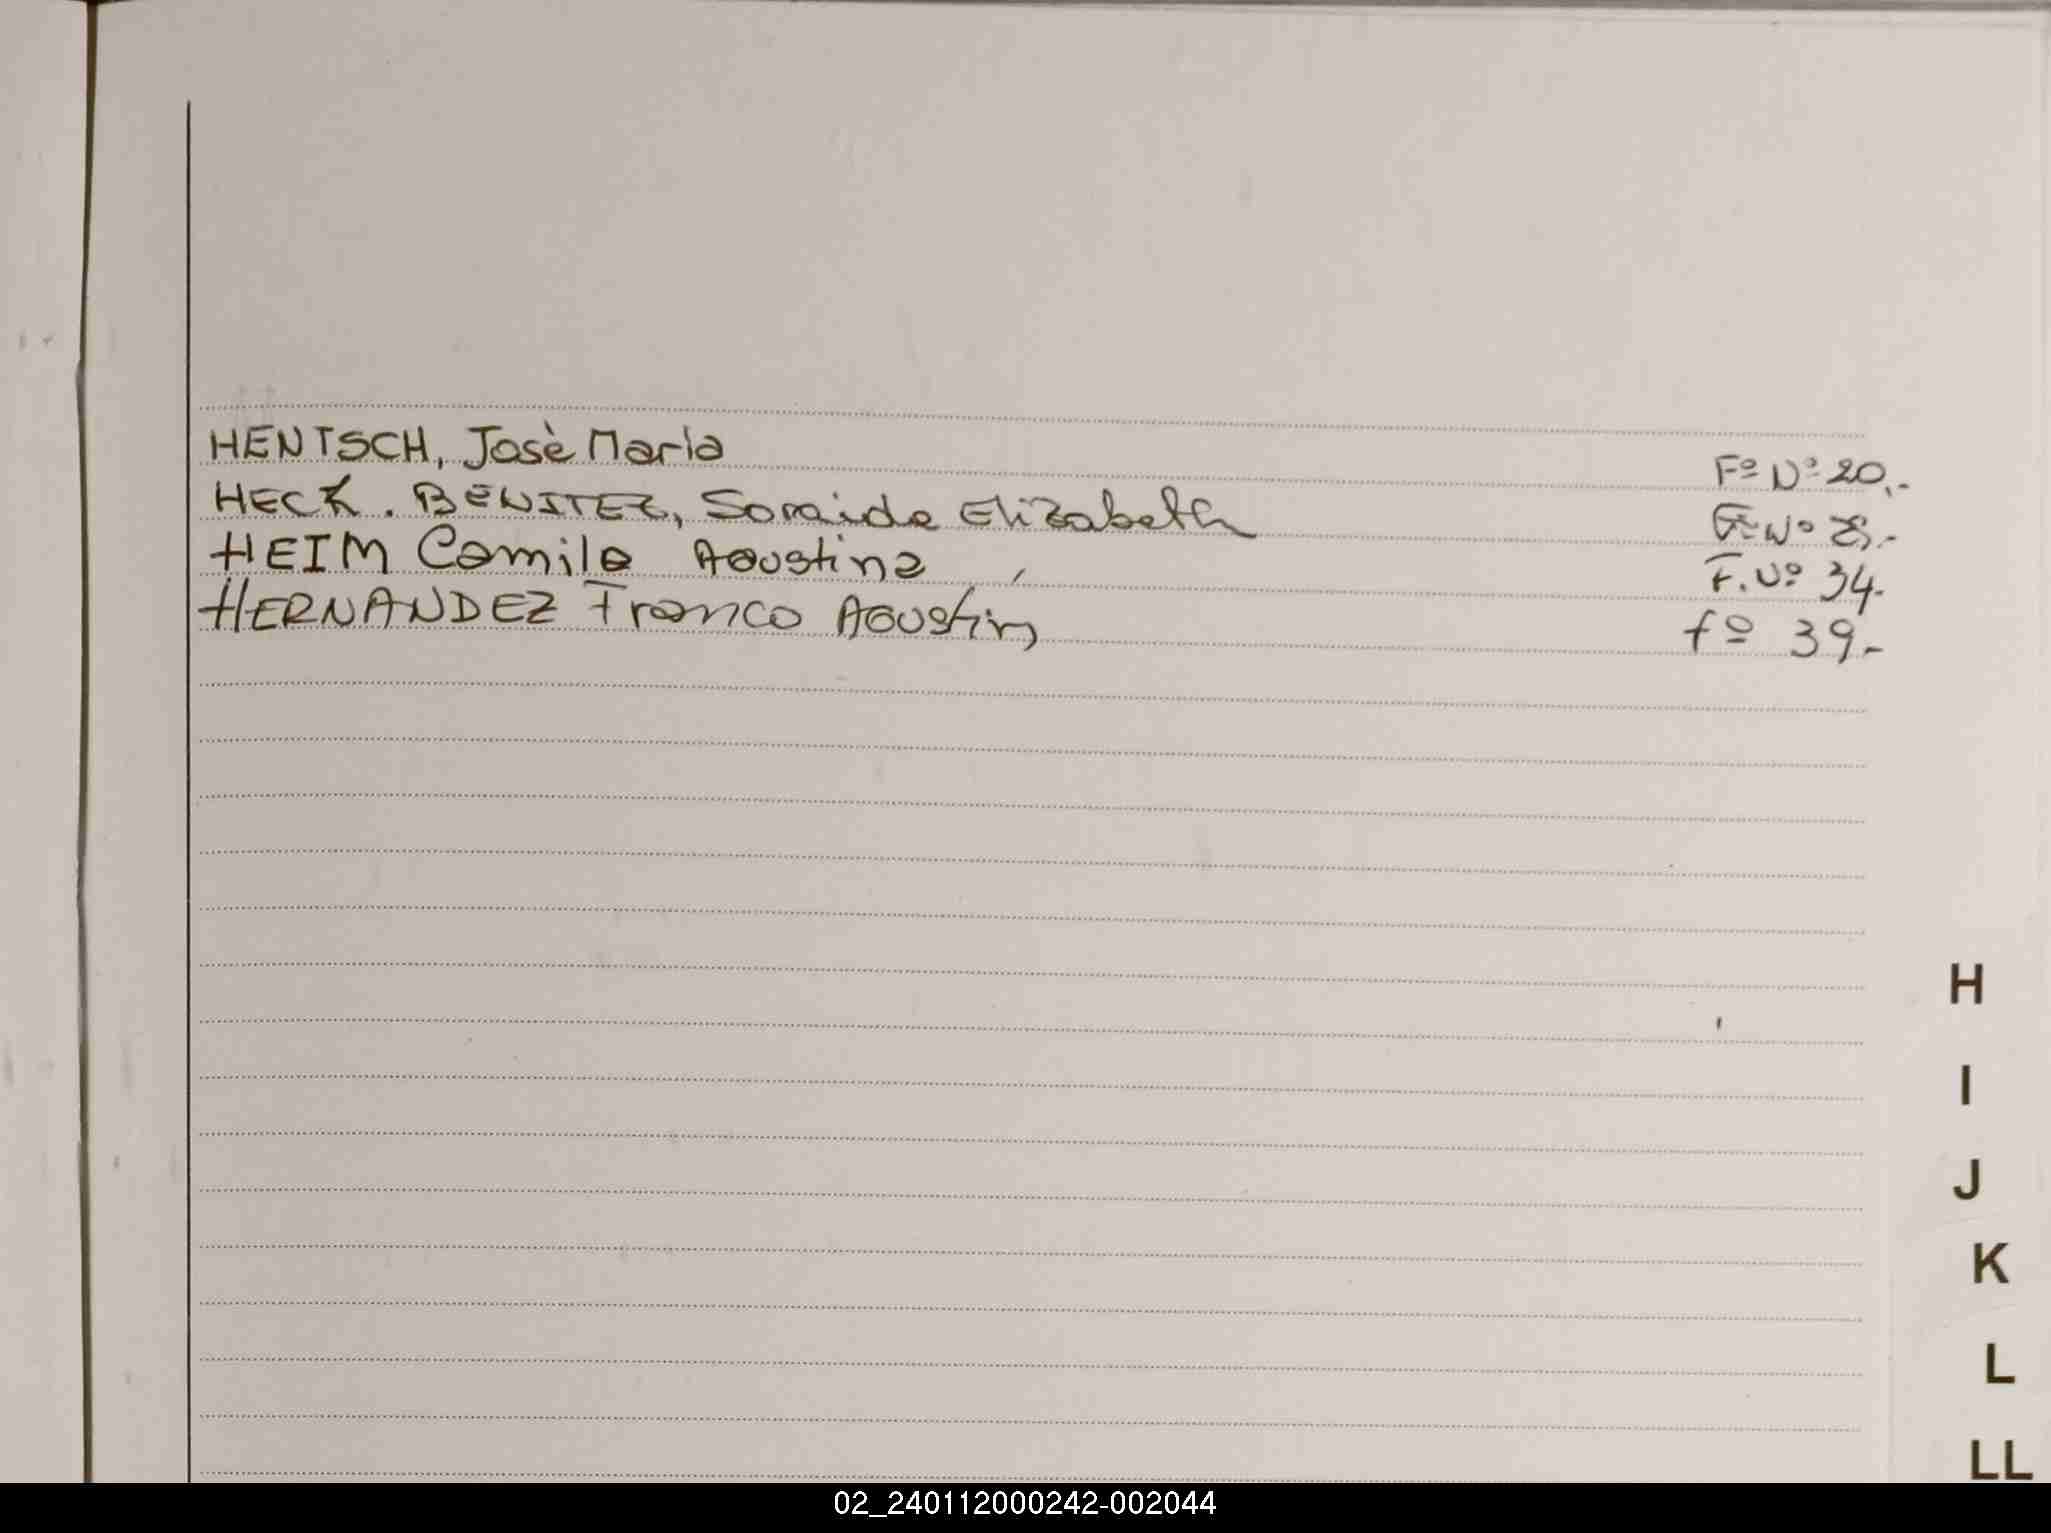 HENTSCH, Josè María Fº Nº 20.-
HECK. BENITEZ, Soraida Elizabeth Fº Nº
HEIM Camila Agustina F. Nº 34.-
HERNANDEZ Franco Agustín fº 39.-
H
I
J
K
L
LL
02_240112000242-002044